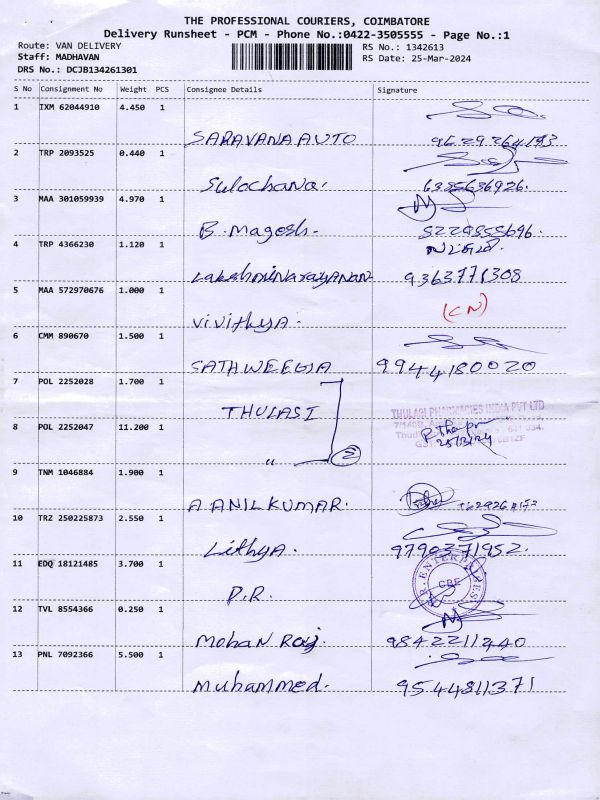 THE PROFESSIONAL COURIERS, COIMBATORE
Delivery Runsheet - PCM - Phone No.:0422-3505555 - Page No.:1
Route: VAN DELIVERY RS No.: 1342613
Staff: MADHAVAN RS Date: 25-Mar-2024
DRS No.: DCJB134261301
S No Consignment No Weight PCS Consignee Details Signature
1 IXM 62044910 4.450 1
SARAVANA AUTO
2 TRP 2093525 0.440 1
Sulochana. 6385636926.
3 MAA 301059939 4.970 1
B. Magesh.
4 TRP 4366230 1.120 1
Lakshminarayanan 9363771308
5 MAA 572970676 1.000 1
(CN)
vivithya.
6 CMM 890670 1.500 1
SATHWEEGA 9944180020
7 POL 2252028 1.700 1
THULASI
THULASI PHARMACIES INDIA PVT LTD
8 POL 2252047 11.200 1
25/3/24
〃 2
9 TNM 1046884 1.900 1
A ANIL KUMAR.
10 TRZ 250225873 2.550 1
Lithya. 9790371952.
11 EDQ 18121485 3.700 1
P.R.
R. ENTERPRISES
CBE
12 TVL 8554366 0.250 1
Mohan Raj. 9842211240
13 PNL 7092366 5.500 1
Muhammed. 9544811371